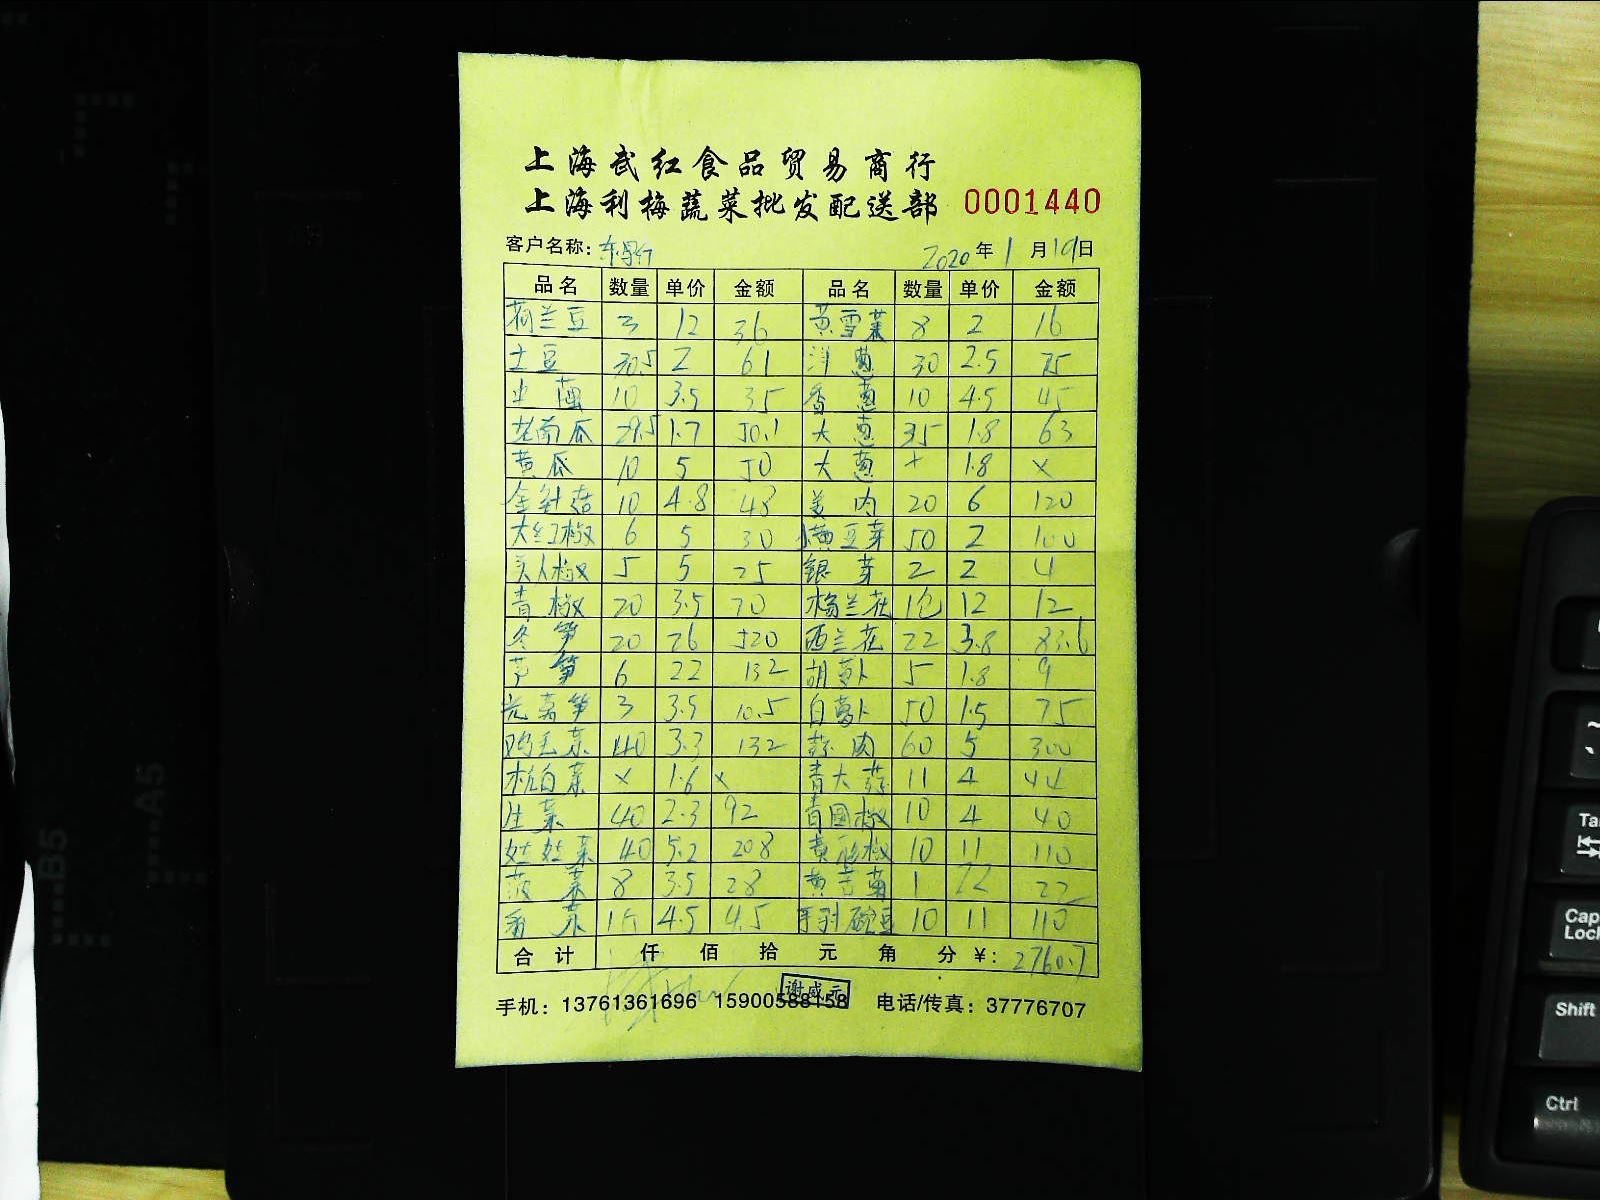 上海武红食品贸易商行
上海利梅蔬菜批发配送部 0001440
客户名称: 2020年1月19日
品名 数量 单价 金额 品名 数量 单价 金额
荷兰豆 3 12 36 黄雪菜 8 2 16
土豆 30.5 2 61 洋葱 30 2.5 75
10 3.5 35 香葱 10 4.5 45
老南瓜 29.5 1.7 50.1 大葱 35 1.8 63
黄瓜 10 5 50 大葱 × 1.8 ×
金针菇 10 4.8 48 姜肉 20 6 120
大红椒 6 5 30 黄豆芽 50 2 100
美人椒 5 5 25 银芽 2 2 4
青椒 20 3.5 70 兰花 1包 12 12
冬笋 20 26 520 西兰花 22 3.8 83.6
芦笋 6 22 132 胡萝卜 5 1.8 9
光莴笋 3 3.5 10.5 白萝卜 50 1.5 75
鸡毛菜 40 3.3 132 蒜肉 60 5 300
杭白菜 × 1.6 × 青大蒜 11 4 44
生菜 40 2.3 92 青圆椒 10 4 40
娃娃菜 40 5.2 208 黄彩椒 10 11 110
菠菜 8 3.5 28 黄苦菊 1 22 22
香菜 1斤 4.5 4.5 手剥碗豆 10 11 110
合计 仟 佰 拾 元 角 分 ¥: 2760.7
谢咸元
手机: 13761361696 15900588158 电话/传真: 37776707
B5
A5
Tab
Caps Lock
Shift
Ctrl